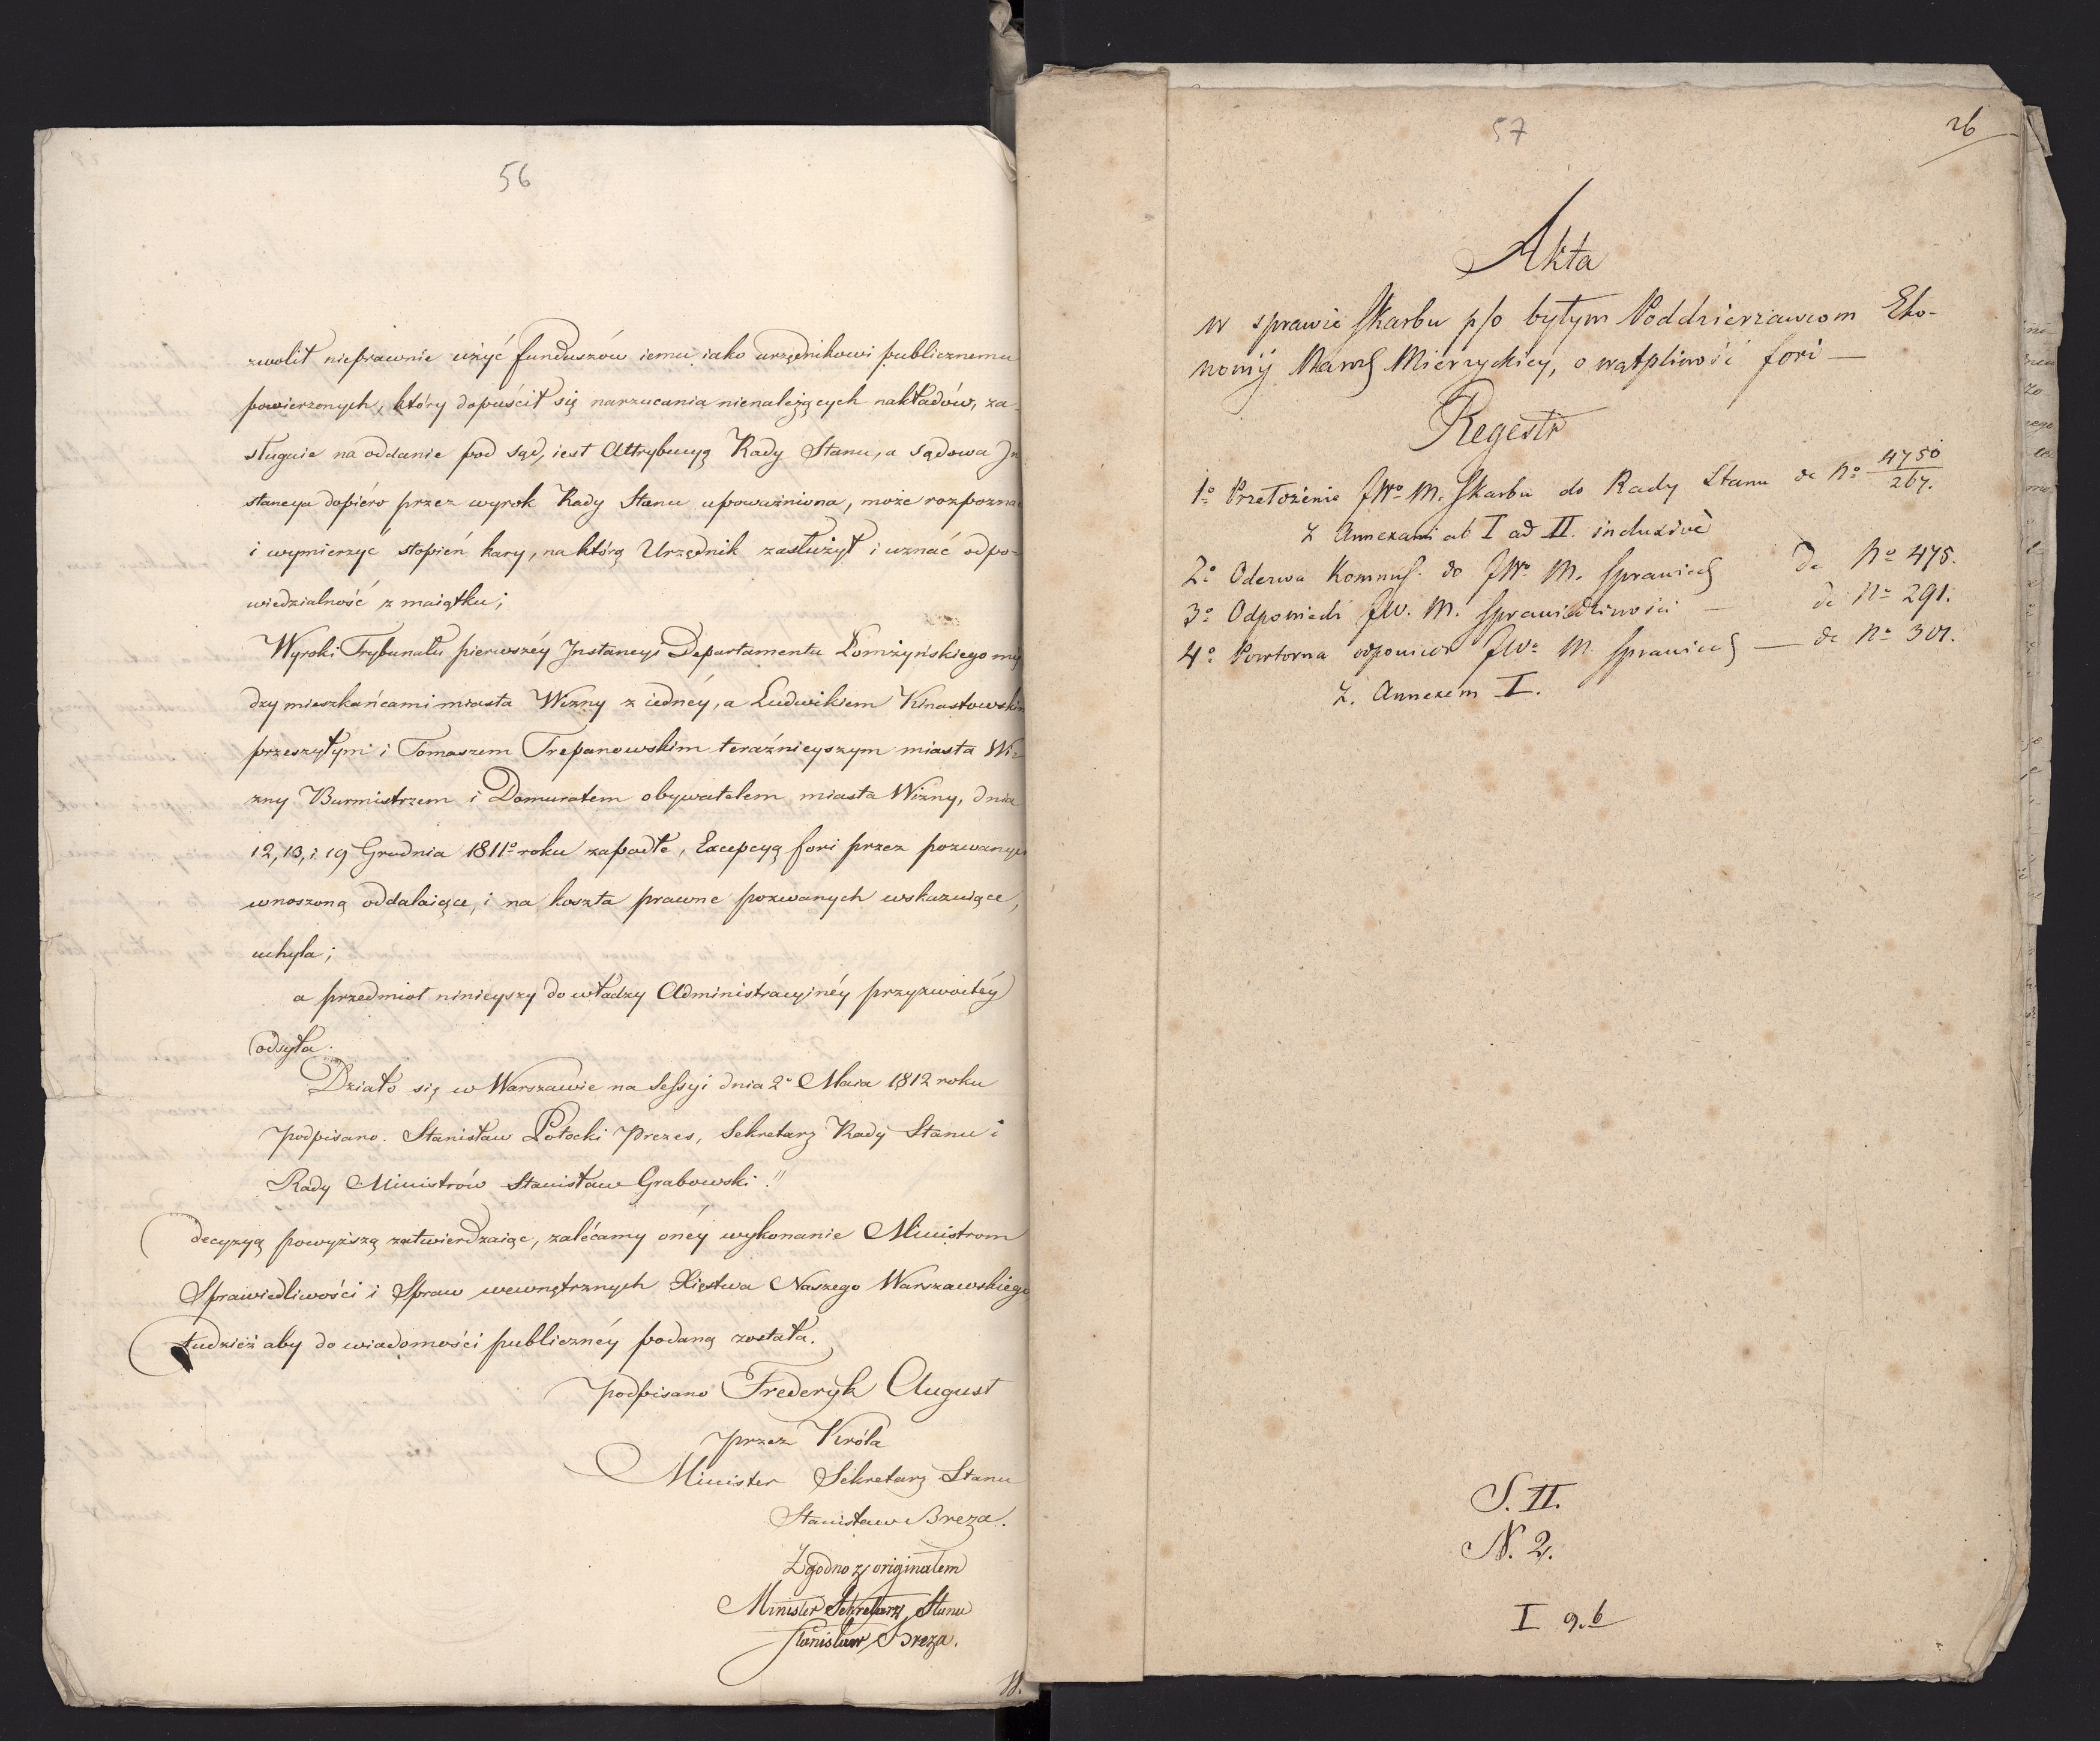 56
zwolił nieprawnie użyć funduszów iemu iako urzędnikowi publicznemu
powierzonych, który dopuścił się narzucania nienależących nakładów, za-
sługuie na oddanie pod sąd, iest Attrybucyą Rady Stanu, a sądowa In
stancya dopiéro przez wyrok Rady Stanu upoważniona, może rozpoznać
i wymierzyć stopień kary, na którą Urzędnik zasłużył i uznać odpo-
wiedzialność z maiątku;
Wyroki Trybunału pierwszéy Instancyi Departamentu Łomżyńskiego mię
dzy mieszkańcami miasta Wizny z iednéy, a Ludwikiem Kinastowskim
przeszłymi i Tomaszem Trepanowskim teraźnieyszym miasta Wi-
zny Burmistrzem i Domuratem obywatelem miasta Wizny, dnia
12, 13, i 19 Grudnia 1811º roku zapadłe, Excepcyą fori przez pozwanych
wnoszoną oddalaiące, i na koszta prawne pozwanych wskazuiące,
uchyla;
a przedmiot ninieyszy do władzy Administracyinéy przyzwoitéy
odsyła.
Działo się w Warszawie na Sessyi dnia 2º Maia 1812 roku
podpisano. Stanisław Potocki Prezes, Sekretarz Rady Stanu i
Rady Ministrów Stanisław Grabowski."
decyzyą powyższą zatwierdzaiąc, zalécamy onéy wykonanie Ministrom
Sprawiedliwości i Spraw wewnętrznych Xięstwa Naszego Warszawskiego
tudzież aby do wiadomości publicznéy podaną została.
podpisano Frederyk August
przez Króla
Minister Sekretarz Stanu
Stanisław Breza.
Zgodno z originałem
Minister Sekretarz Stanu
Stanisław Breza.
57
26
Akta
w sprawie Skarbu p/o byłym Poddzierżawcom Eko-
nomij Mierzyckiey, o wątpliwość fori —
Regestr
1º Przełożenie JWº M. Skarbu do Rady Stanu de Nº 4750/267.
z Annexami ab I ad II. inclusivè
2º Odezwa do JWº M. Sprawied de Nº 475.
3º Odpowiedź JW. M. Sprawiedliwości — de Nº 291.
4º Powtorna odpowiedź JWº M. Sprawied — de Nº 301.
z. Annexem I.
S. II.
N. 2.
I 9.b